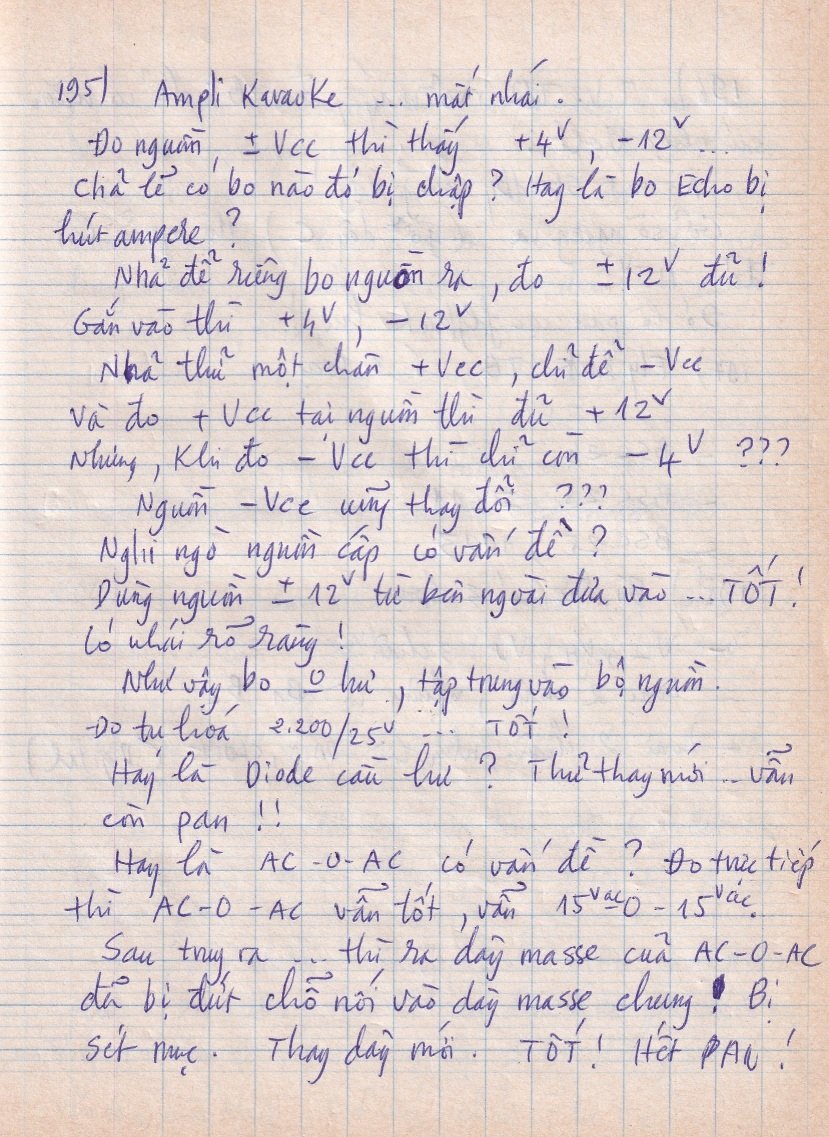 195/ Ampli Karaoke ... mất nhái.
Đo nguồn, ± Vcc thì thấy +4V, -12V ...
Chả lẽ có bo nào đó bị chập? Hay là bo Echo bị
hút ampere?
Nhả để riêng bo nguồn ra, đo ±12V đủ!
Gắn vào thì +4V, -12V
Nhả thử một chân +Vcc, chỉ để -Vcc
và đo +Vcc tại nguồn thì đủ +12V
Nhưng, Khi đo -Vcc thì chỉ còn -4V ???
Nguồn -Vcc cũng thay đổi ???
Nghi ngờ nguồn cấp có vấn đề?
Dùng nguồn ±12V từ bên ngoài đưa vào ... TỐT!
Có nhái rõ ràng!
Như vậy bo O hư, tập trung vào bộ nguồn.
Đo tụ hoá 2.200/25V ... TỐT!
Hay là Diode cầu hư? Thử thay mới .. vẫn
còn pan!!
Hay là AC-O-AC có vấn đề? Đo trực tiếp
thì AC-O-AC vẫn tốt, vẫn 15Vac-O-15Vac.
Sau truy ra ... thì ra dây masse của AC-O-AC
đã bị đứt chỗ nối vào dây masse chung! Bị
sét mục. Thay dây mới. TỐT! Hết PAN!